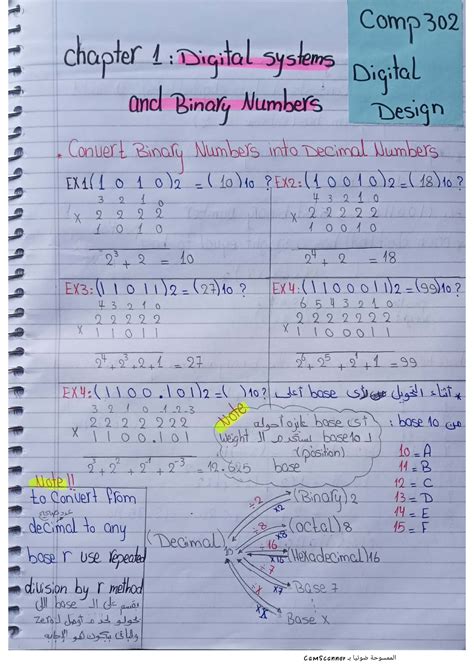 Comp 302
Digital
Design
chapter 1: Digital systems
and Binary Numbers
. Convert Binary Numbers into Decimal Numbers
EX1 (1 0 1 0)2 = (10)10 ?
3 2 1 0
x 2 2 2 2
1 0 1 0
2³ + 2 = 10
EX2: (1 0 0 1 0)2 = (18)10 ?
4 3 2 1 0
x 2 2 2 2 2
1 0 0 1 0
2⁴ + 2 = 18
EX3: (1 1 0 1 1)2 = (27)10 ?
4 3 2 1 0
x 2 2 2 2 2
1 1 0 1 1
2⁴+2³+2+1 = 27
EX4: (1 1 0 0 0 1 1)2 = (99)10 ?
6 5 4 3 2 1 0
x 2 2 2 2 2 2 2
1 1 0 0 0 1 1
2⁶+2⁵+2¹+1 = 99
EX4: (1 1 0 0 . 1 0 1)2 = ( )10 ?
3 2 1 0 -1 -2 -3
x 2 2 2 2 2 2 2
1 1 0 0 . 1 0 1
2³+2²+2⁻¹+2⁻³ = 12.625
* أثناء التحويل من أي base أعلى
من base 10 :
Note
أي base عايزة أحوله
لـ base 10 بستخدم الـ weight
(position)
base
10 = A
11 = B
12 = C
13 = D
14 = E
15 = F
Note !!
to convert from
decimal to any
base r use repeated
division by r method
بقسم على الـ base اللي
(Decimal)10
÷2 x2 (Binary)2
÷8 x8 (octal)8
÷16 x16 (Hexadecimal)16
÷7 x7 Base 7
Base X
الممسوحة ضوئيا بـ CamScanner